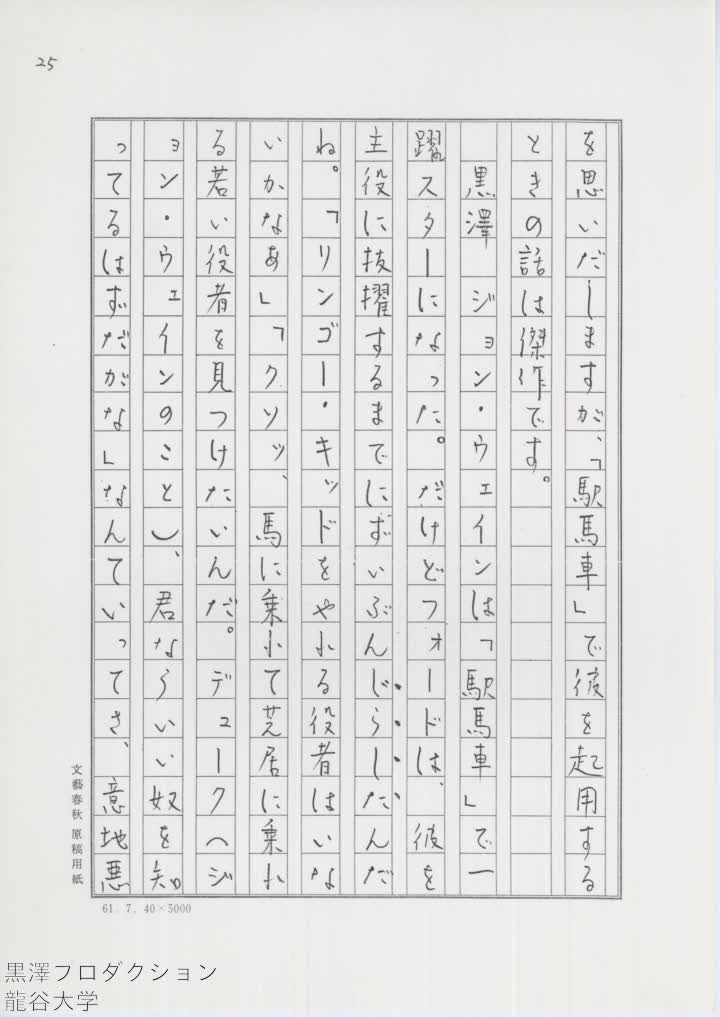 25
を思いだしますが、「駅馬車」で彼を起用する
ときの話は傑作です。
黒澤　ジョン・ウェインは「駅馬車」で一
躍スターになった。だけどフォードは、彼を
主役に抜擢するまでにずいぶんじらしたんだ
ね。「リンゴー・キッドをやれる役者はいな
いかなあ」「クソッ、馬に乗れて芝居に乗れ
る若い役者を見つけたいんだ。デューク（ジ
ョン・ウェインのこと）、君ならいい奴を知
ってるはずだがな」なんていってさ、意地悪
文藝春秋原稿用紙
61. 7. 40×5000
黒澤プロダクション
龍谷大学